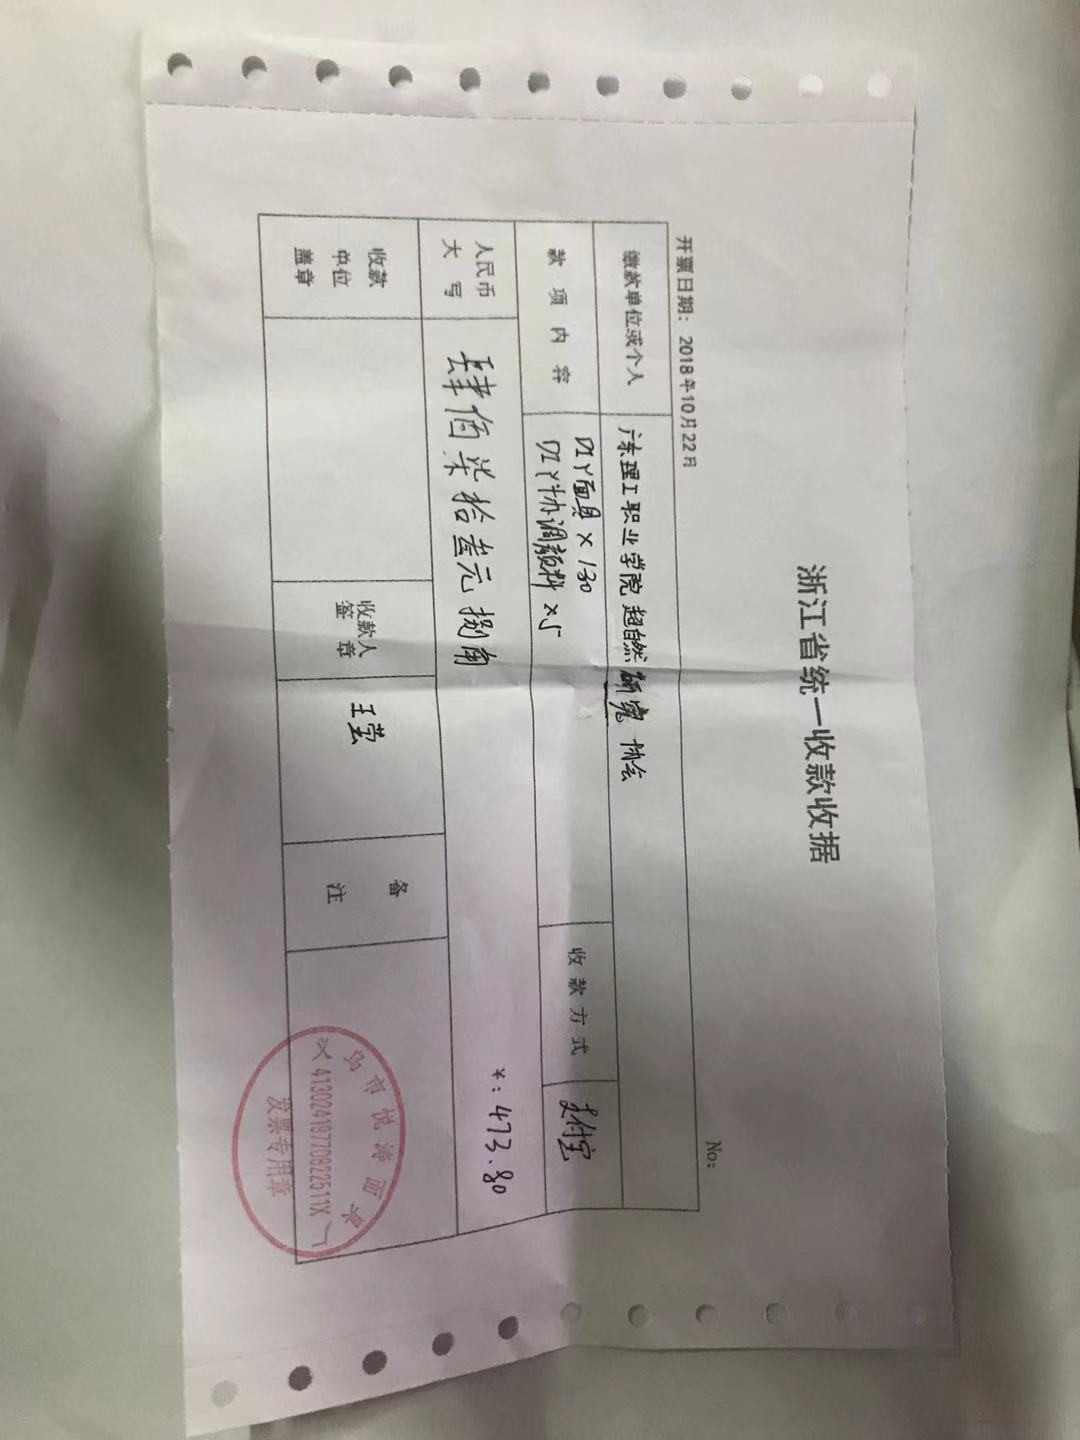 浙江省统一收款收据
开票日期：2018年10月22日
No:
缴款单位或个人
广东理工职业学院超自然研究协会
款项内容
DIY面具×130
DIY协调颜料×5
收款方式
支付宝
人民币
大写
肆佰柒拾叁元捌角
*:473.80
收款
单位
盖章
收款人
签章
王莹
备
注
义乌市悦海面具厂
41302419770822511X
发票专用章